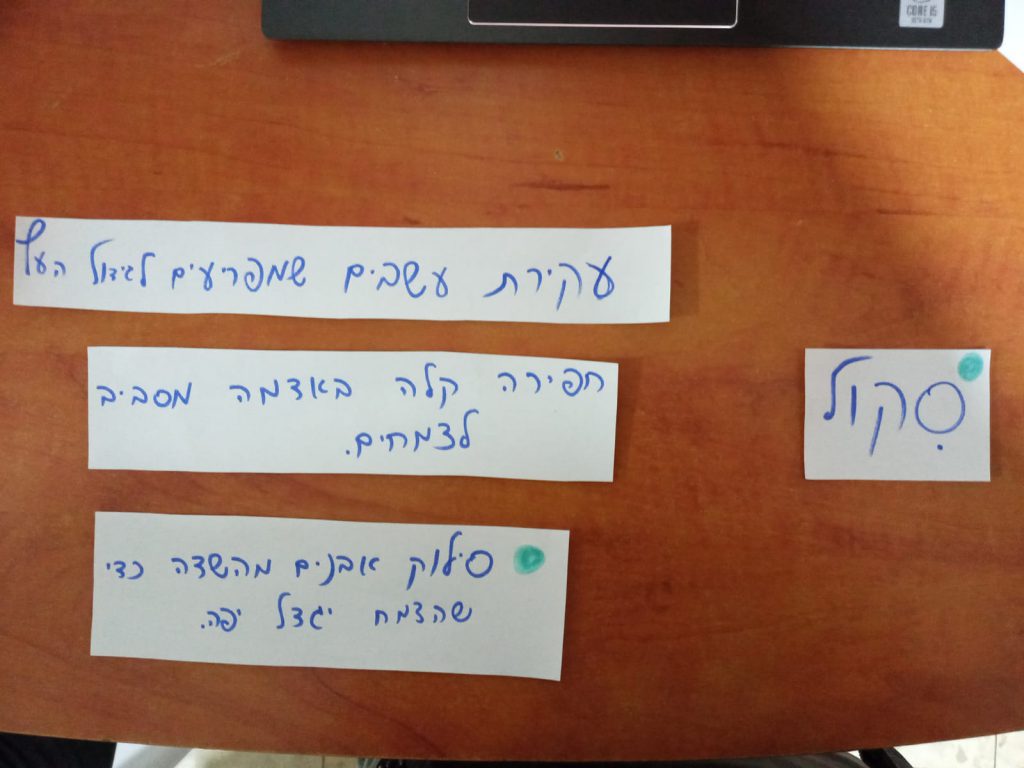 CORE i5
עקירת עשבים שמפריעים לגידול העץ
חפירה קלה באדמה מסביב
לצמחים.
סִקול
סילוק אבנים מהשדה כדי
שהצמח יגדל יפה.